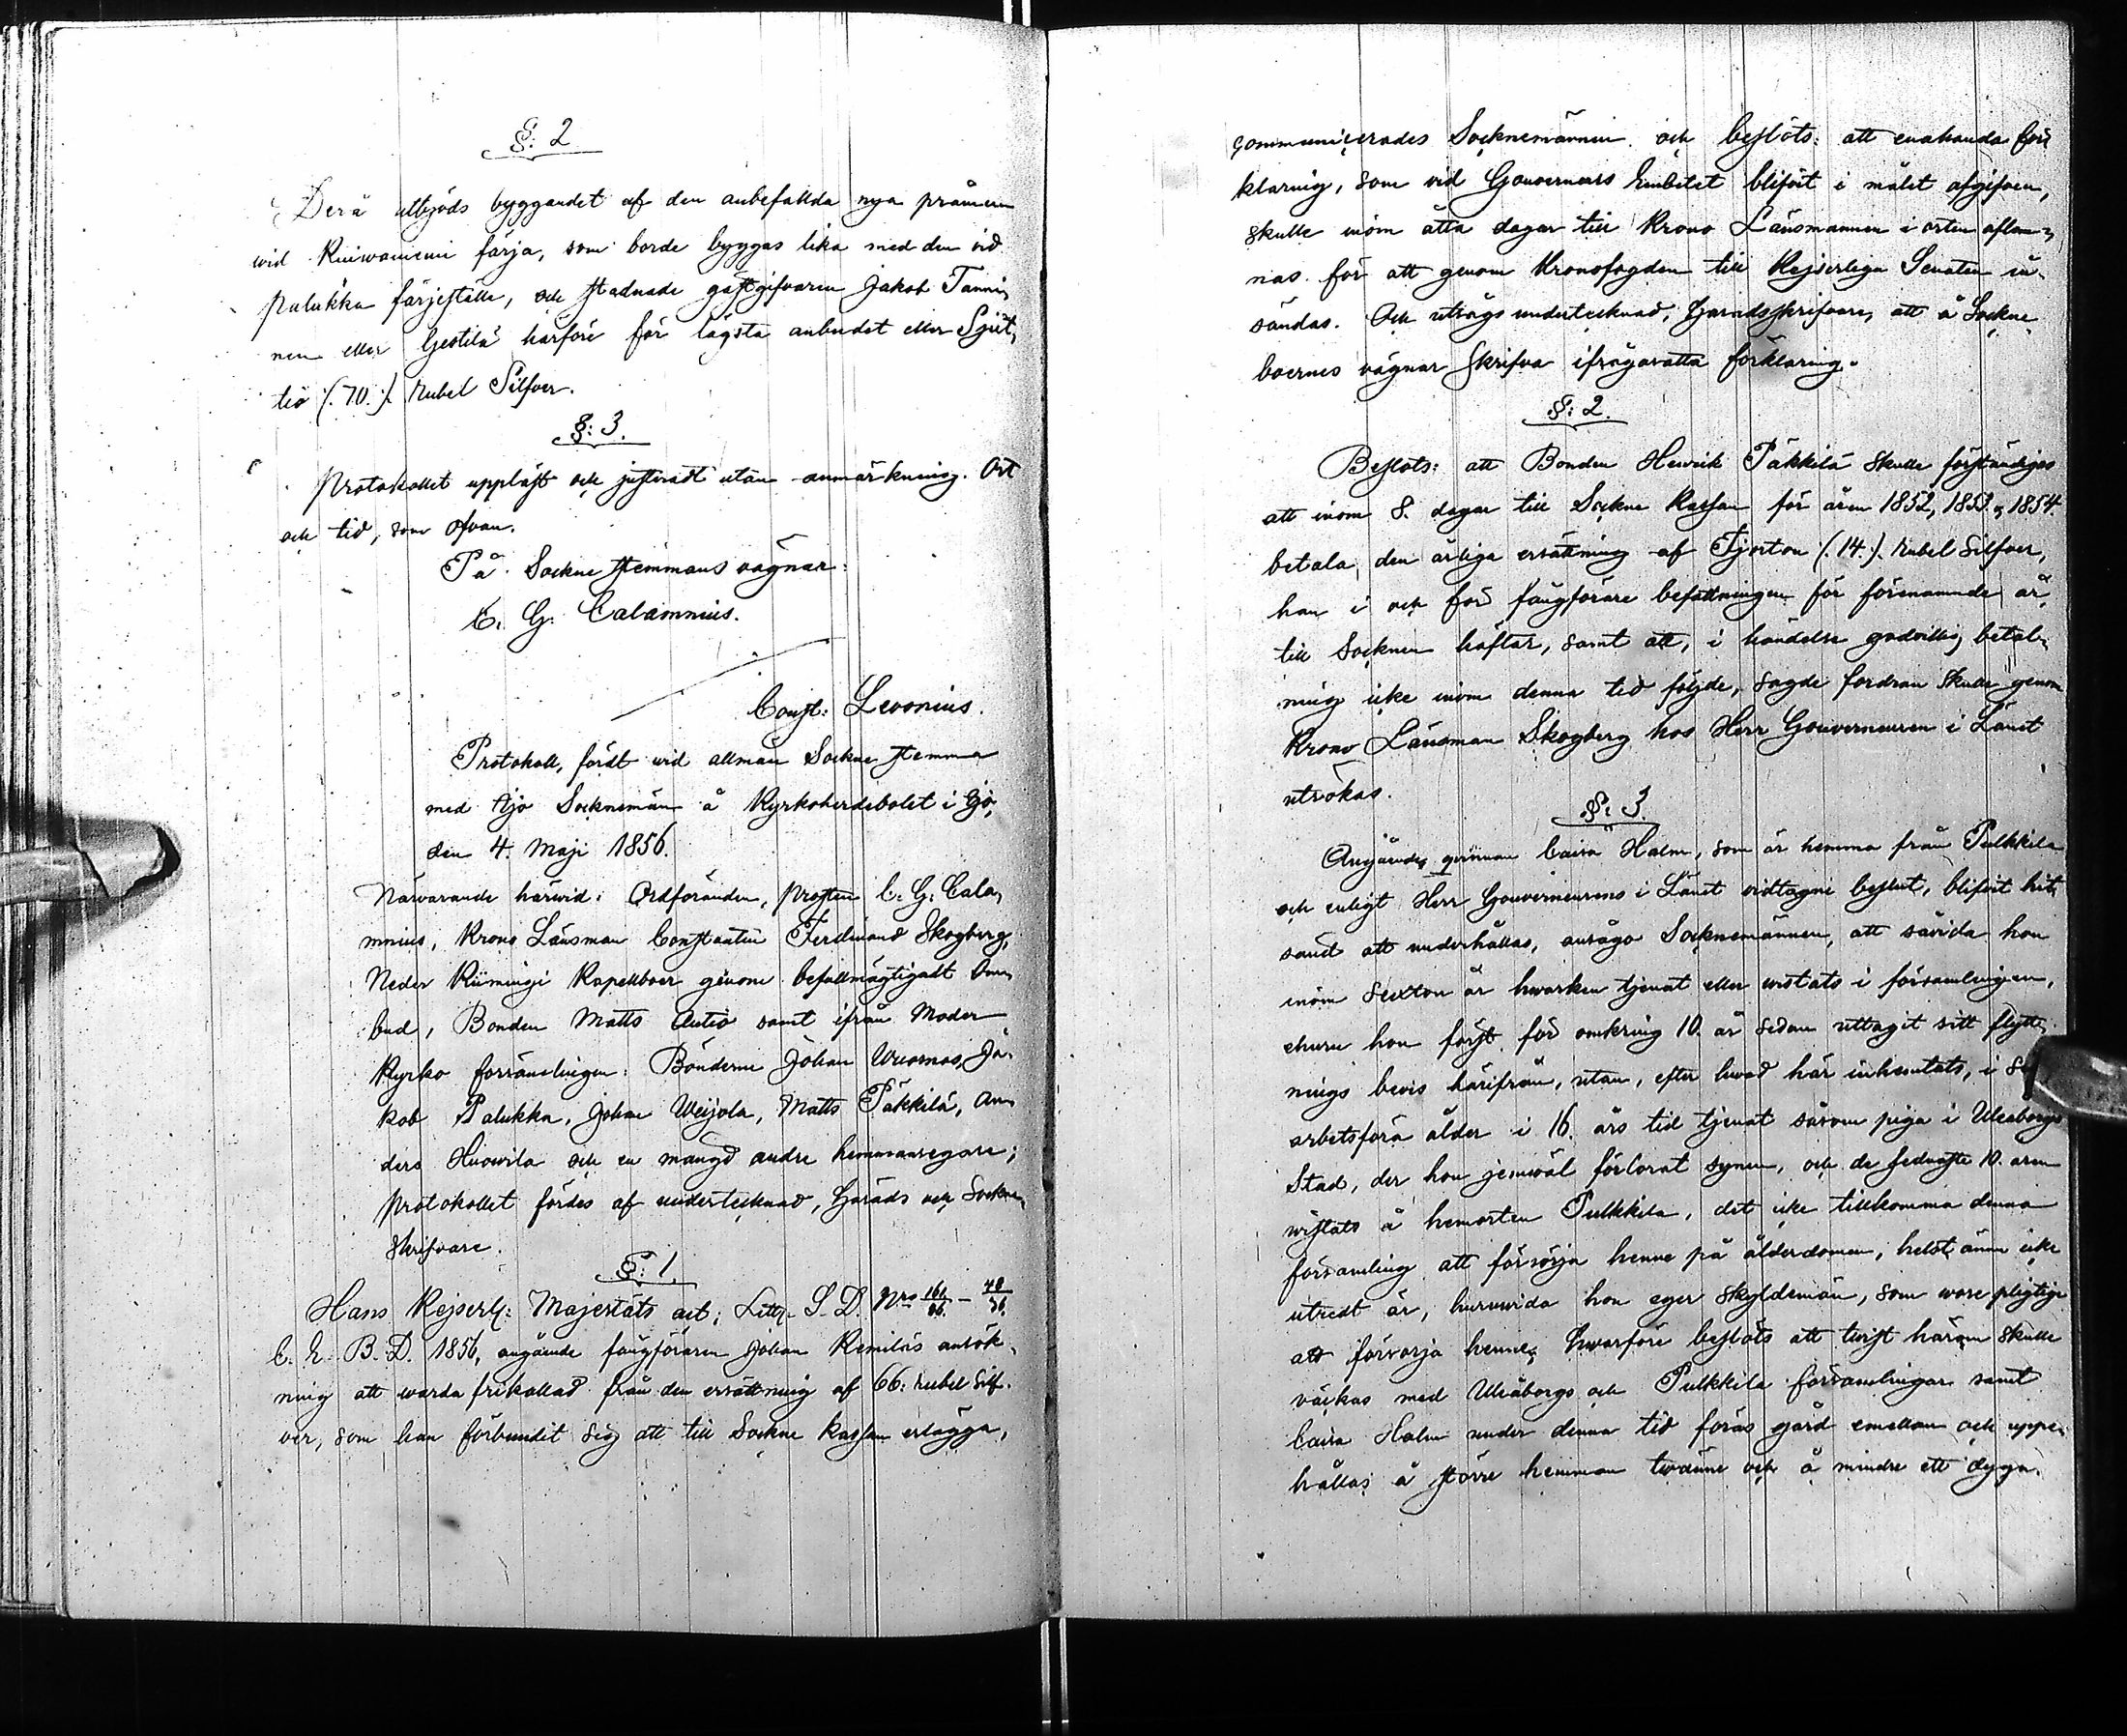 §: 2
Derå utbjöds byggandet af den anbefallda nya pråmen
wid Kuiwaniemi färja, som borde byggas lika med den vid
Palukka färjeställe, och stadnade gästgifvaren Jakob Tanni,
nen eller Gestilä härföre för lägsta anbudet eller Sjut,
tio (70.) Rubel Silfver.
§: 3.
Protokollet uppläst och justeradt utan anmärkning. Ort
och tid, som ofvan.
På Sockne stemmans vägnar:
C. G. Calamnius.
Const: Levonius.
Protokoll, fördt wid allmän Sockne stemma
med Ijo Socknemän å Kyrkoherdebolet i Ijo,
den 4. Maji 1856.
Närvarande härwid: Ordföranden, Prosten C. G. Cala,
mnius, Krono Länsman Constantin Ferdinand Skogberg,
Neder Kiimingi Kapellboer genom befullmägtigadt Om,
bud, Bonden Matts Autio samt ifrån Moder
Kyrko församlingen: Bönderne Johan Wuornos, Ja,
kob Palukka, Johan Weijola, Matts Päkkilä, An,
ders Huowila och en mängd andre hemmansegare;
Protokollet fördes af undertecknad, Härads och Sockne,
skrifvare.
§: 1.
Hans Kejserl: Majestäts act; Litt. S. D. Nro 161/86. - 48/56.
C. E. B. D. 1856, angående fångföraren Johan Remiläs ansök,
ning att warda frikallad från den ersättning af 66: rubel Silf.
ver, som han förbundit sig att till Sockne kassan erlägga,
communicerades Socknemännen och beslöts: att enahanda för
klaring, som vid Gouverneurs Embetet blifvit i målet afgifven,
skulle inom åtta dagar till Krono Länsmannen i orten aflem,
nas för att genom Kronofogden till Kejserliga Senaten in,
sändas. Och utsågs undertecknad, Häradsskrifvare, att å Sockne,
boernes vägnar skrifva ifrågavarande förklaring.
§: 2.
Beslöts: att Bonden Henrik Päkkilä skulle förständigas
att inom 8. dagar till Sockne Kassan för åren 1852, 1853 & 1854.
betala den årliga ersättning af Fjorton (14.) Rubel Silfver,
han i och för fångförare befattningen för förenämnde år,
till Socknen häftar, samt att, i händelse godvillig betal,
ning icke inom denna tid följde, sagde fordran skulle genom
Krono Länsman Skogberg hos Herr Gouverneuren i Länet
utsökas.
§: 3.
Angående qvinnan Caisa Halm, som är hemma från Pulkkila
och enligt Herr Gouverneurens i Länet vidtagne beslut, blifvit hit,
sänd att underhållas, ansågo Socknemännen, att såvida hon
inom sexton år hwarken tjenat eller wistats i församlingen,
ehuru hon först för omkring 10. år sedan uttagit sitt flytt,
nings bevis härifrån, utan, efter hwad här inhemtats, i
arbetsföra ålder i 16. års tid tjenat såsom piga i Uleåborgs
Stad, der hon jemwäl förlorat synen, och de sednaste 10. åren
wistats å hemorten Pulkkila, det icke tillkomma denna
församling att försörja henne på ålderdomen, helst ännu icke
utredt är, huruwida hon eger skyldemän, som wore pligtige
att försörja henne, hwarföre beslöts att twist härom skulle
väckas med Uleåborgs och Pulkkila församlingar samt
Caisa Halm under denna tid föras gård emellan och uppe,
hållas å större hemman twänne och å mindre ett dygn.